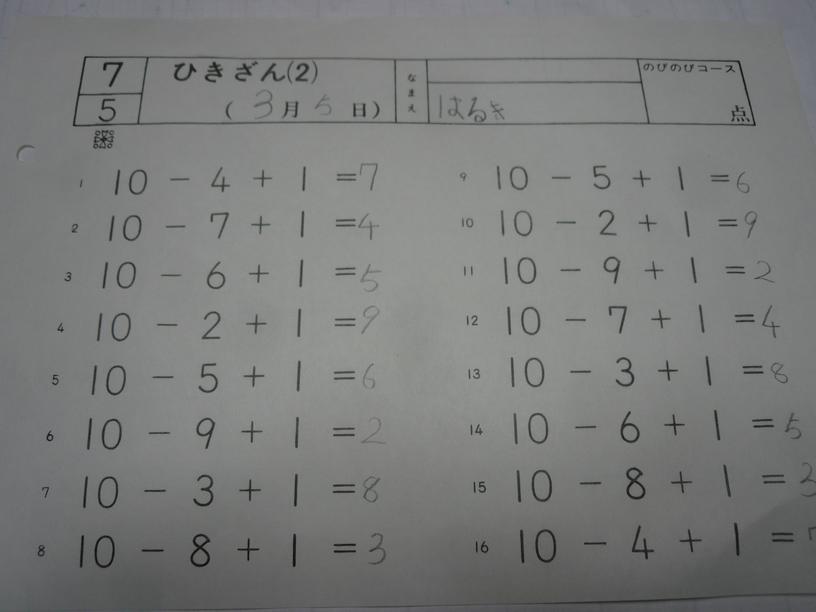 7 ひきざん(2) なまえ のびのびコース
5 (3月5日) はるき 点
1 10 - 4 + 1 =7
2 10 - 7 + 1 =4
3 10 - 6 + 1 =5
4 10 - 2 + 1 =9
5 10 - 5 + 1 =6
6 10 - 9 + 1 =2
7 10 - 3 + 1 =8
8 10 - 8 + 1 =3
9 10 - 5 + 1 =6
10 10 - 2 + 1 =9
11 10 - 9 + 1 =2
12 10 - 7 + 1 =4
13 10 - 3 + 1 =8
14 10 - 6 + 1 =5
15 10 - 8 + 1 =3
16 10 - 4 + 1 =